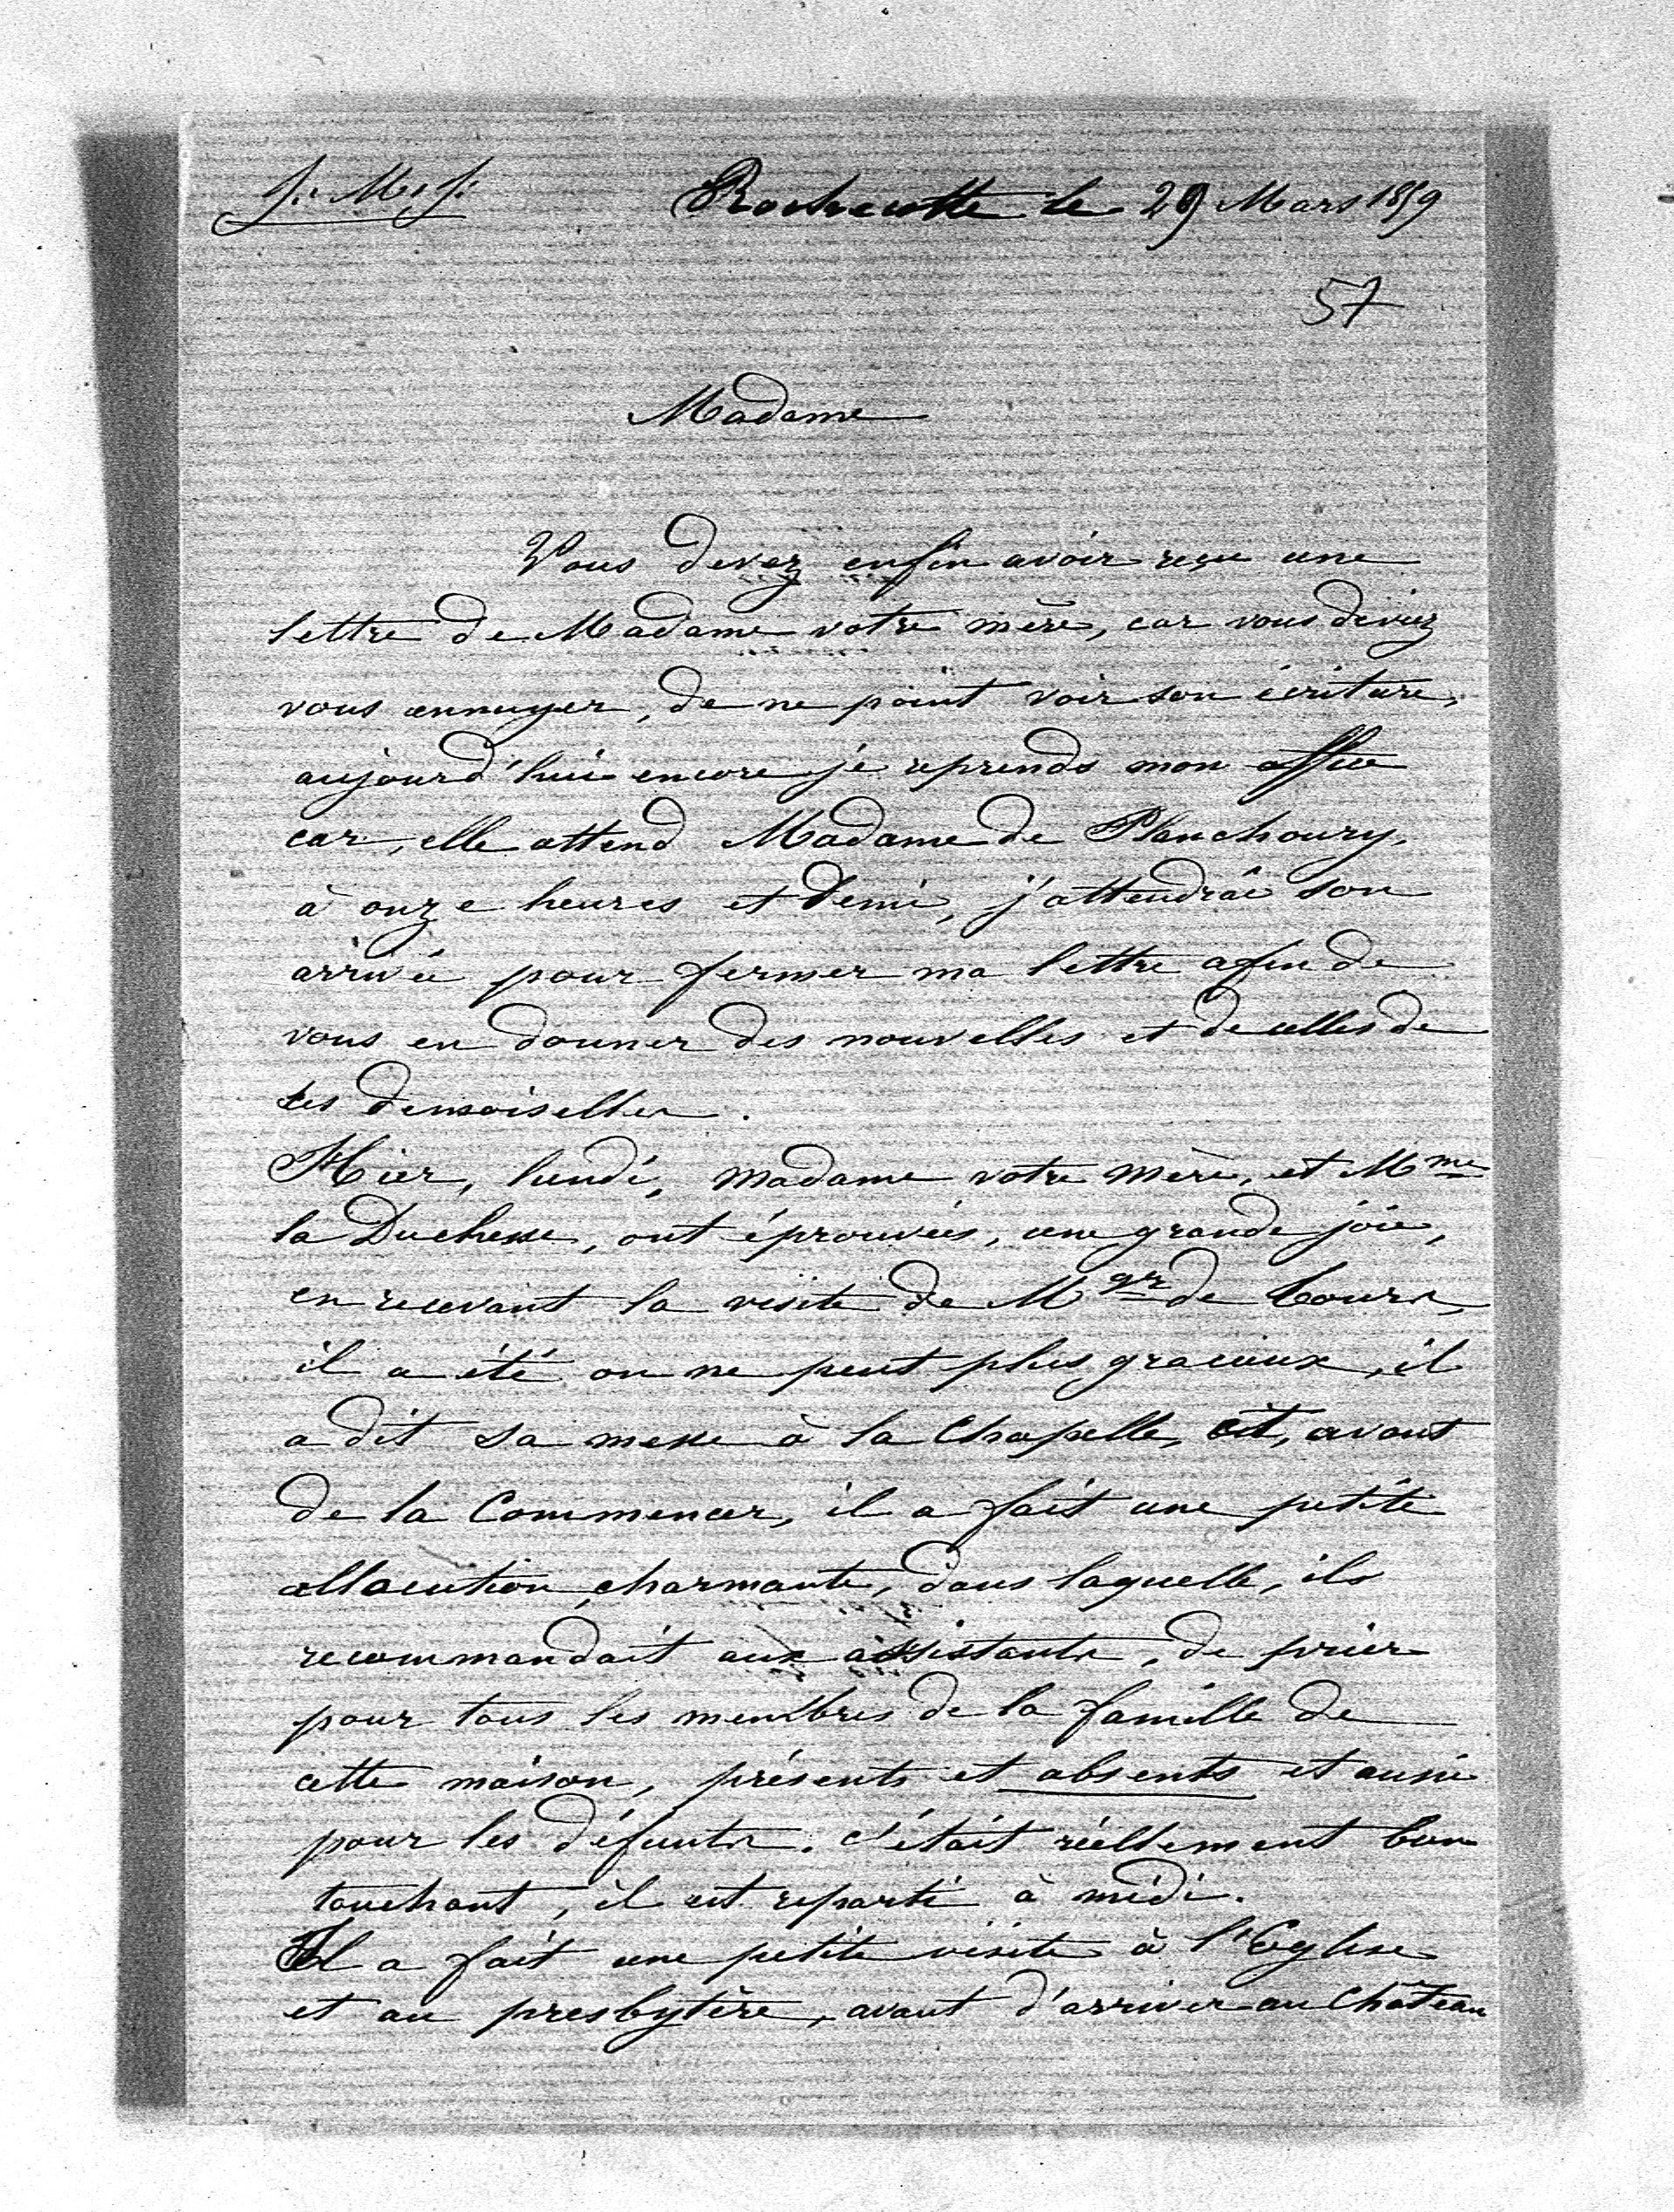 J. M. J. Rochecotte le 29 Mars 1859
57
Madame
Vous devez enfin avoir reçu une
lettre de Madame votre mère, car vous deviez
vous ennuyer, de ne point voir son écriture,
aujourd'hui encore je reprends mon office
car, elle attend Madame de Planchoury,
à onze heures et demi, j'attendrai son
arrivée pour fermer ma lettre afin de
vous en donner des nouvelles et de celles de
ses demoiselles.
Hier, lundi, Madame votre mère, et Mme
la Duchesse, ont éprouvées, une grande joie,
en recevant la visite de Mgr de Tours,
il a été on ne peut plus gracieux, il
a dit sa messe à la Chapelle, et, avant
de la Commencer, il a fait une petite
allocution charmante, dans laquelle, ils
recommandait aux assistants, de prier
pour tous les membres de la famille de
cette maison, présents et absents et aussi
pour les défunts. c'était réellement bien
touchant, il est reparti à midi.
Il a fait une petite visite à l'Eglise
et au presbytère, avant d'arriver au Château